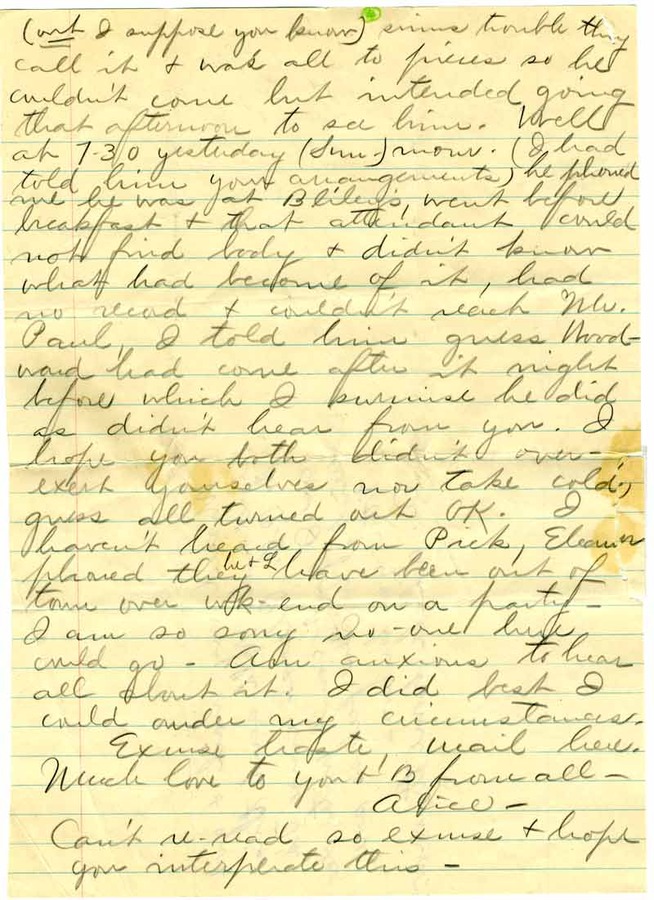 (out I suppose you know) sinus trouble they
call it & was all to pieces so he
couldn't come but intended going
that afternoon to see him. Well
at 7-30 yesterday (Sun.) morn. (I had
told him your arrangements) he phoned
me he was at Bliley's, went before
breakfast & that attendant could
not find body & didn't know
what had become of it, had
no record & couldn't reach Mr.
Paul, I told him guess Wood-
ward had come after it night
before which I surmise he did
as didn't hear from you. I
hope you both didn't over-
exert yourselves nor take cold,
guess all turned out OK. I
haven't heard from Pick, Eleanor
phoned they he & L have been out of
town over wk-end on a party -
I am so sorry no-one here
could go - Am anxious to hear
all about it. I did best I
could under my circumstances.
Excuse haste, mail here.
Much love to you & B from all -
Alice -
Can't re-read so excuse & hope
you interperate this -